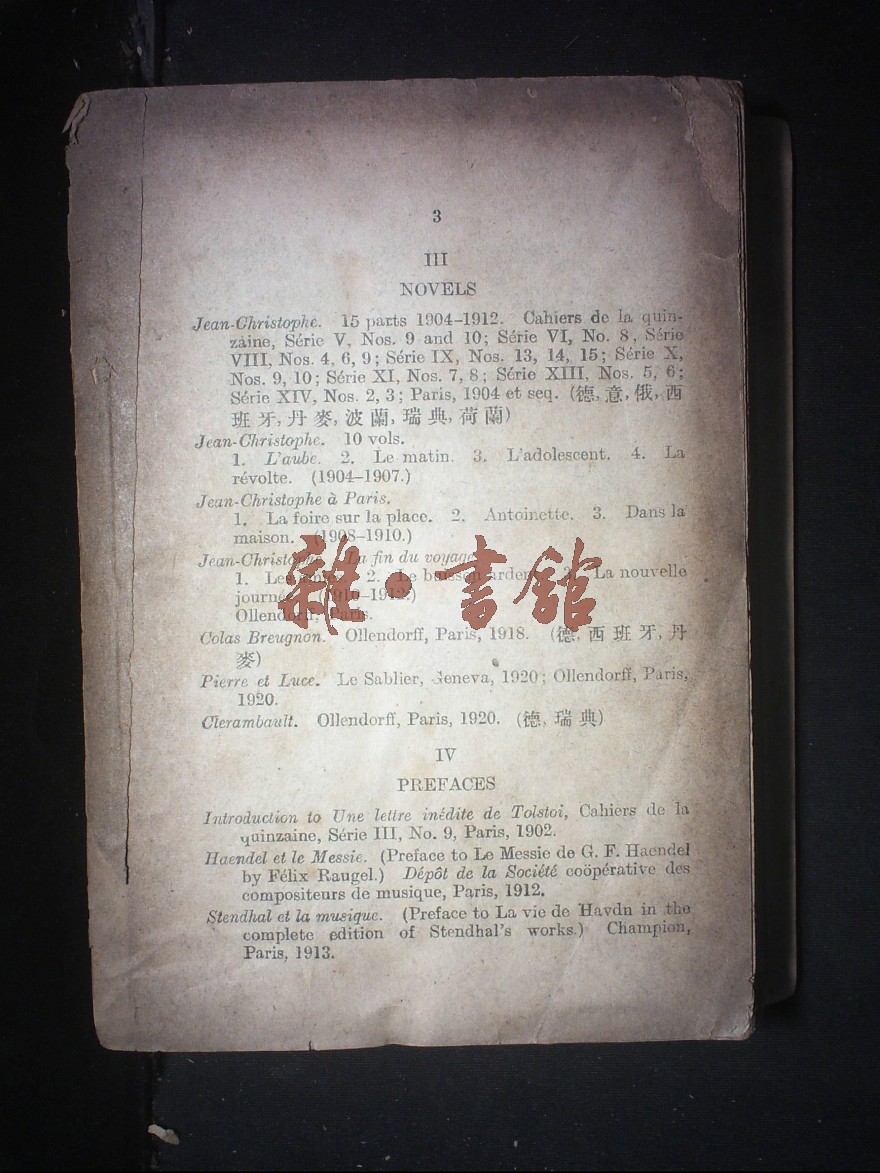 3
III
NOVELS
Jean-Christophe. 15 parts 1904–1912. Cahiers de la quin-
zaine, Série V, Nos. 9 and 10; Série VI, No. 8, Série
VIII, Nos. 4, 6, 9; Série IX, Nos. 13, 14, 15; Série X,
Nos. 9, 10; Série XI, Nos. 7, 8; Série XIII, Nos. 5, 6;
Série XIV, Nos. 2, 3; Paris, 1904 et seq. (德, 意, 俄, 西
班牙, 丹麥, 波蘭, 瑞典, 荷蘭)
Jean-Christophe. 10 vols.
1. L'aube. 2. Le matin. 3. L'adolescent. 4. La
révolte. (1904–1907.)
Jean-Christophe à Paris.
1. La foire sur la place. 2. Antoinette. 3. Dans la
maison. (1908–1910.)
Jean-Christophe. La fin du voyage
1. Les 2. Le buisson ardent. 3. La nouvelle
journée. (1910–1912.)
Ollendorff, Paris.
雜·書館
Colas Breugnon. Ollendorff, Paris, 1918. (德, 西班牙, 丹
麥)
Pierre et Luce. Le Sablier, Geneva, 1920; Ollendorff, Paris,
1920.
Clerambault. Ollendorff, Paris, 1920. (德, 瑞典)
IV
PREFACES
Introduction to Une lettre inédite de Tolstoi, Cahiers de la
quinzaine, Série III, No. 9, Paris, 1902.
Haendel et le Messie. (Preface to Le Messie de G. F. Haendel
by Félix Raugel.) Dépôt de la Société coöpérative des
compositeurs de musique, Paris, 1912.
Stendhal et la musique. (Preface to La vie de Haydn in the
complete edition of Stendhal's works.) Champion,
Paris, 1913.